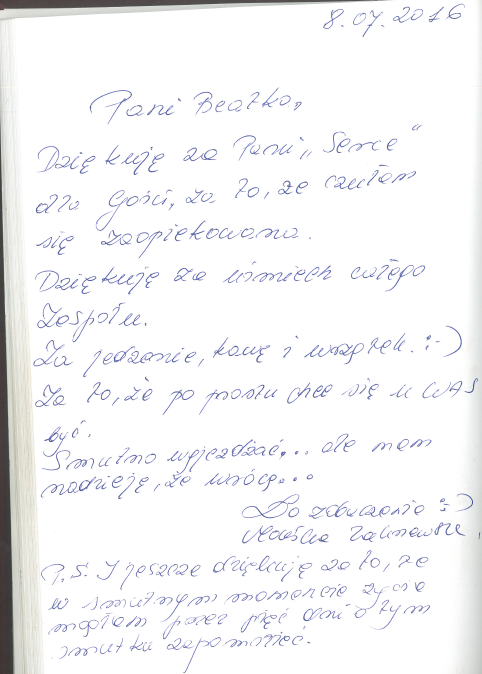 8.07.2016
Pani Beatko,
Dziękuję za Pani „Serce"
dla Gości, za to, że czułam
się zaopiekowana.
Dziękuję za uśmiech całego
Zespołu.
Za jedzenie, kawę i wrzątek. :-)
Za to, że po prostu chce się u WAS
być.
Smutno wyjeżdżać... ale mam
nadzieję, że wrócę...
Do zobaczenia :-)
P.S. I jeszcze dziękuję za to, że
w smutnym momencie życia
mogłam przez pięć dni o tym
smutku zapomnieć.